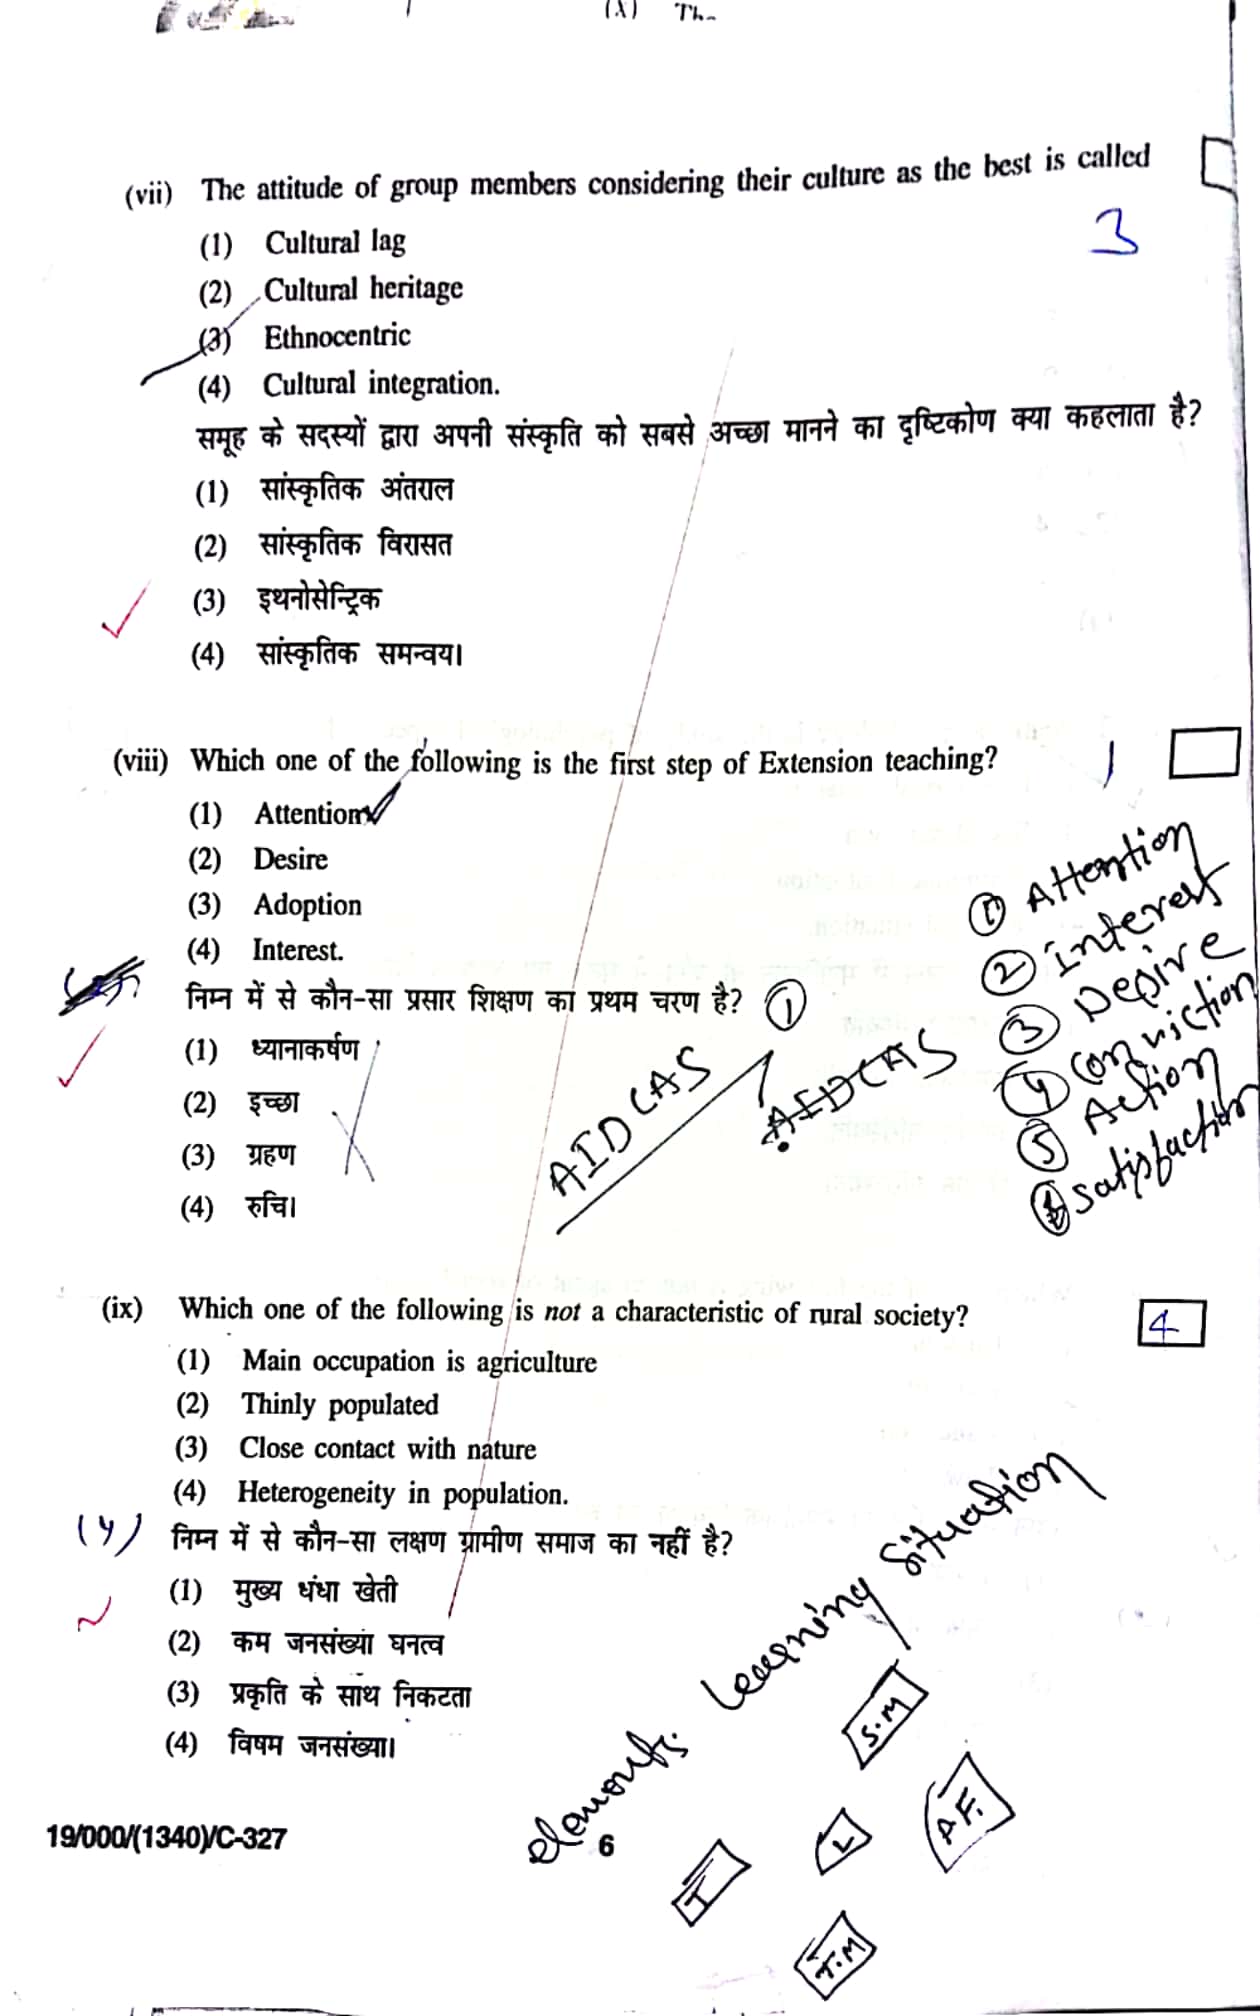 (vii) The attitude of group members considering their culture as the best is called
3
(1) Cultural lag
(2) Cultural heritage
(3) Ethnocentric
(4) Cultural integration.
समूह के सदस्यों द्वारा अपनी संस्कृति को सबसे अच्छा मानने का दृष्टिकोण क्या कहलाता है?
(1) सांस्कृतिक अंतराल
(2) सांस्कृतिक विरासत
(3) इथनोसेन्ट्रिक
(4) सांस्कृतिक समन्वय।
(viii) Which one of the following is the first step of Extension teaching? 1
(1) Attention
(2) Desire
(3) Adoption
(4) Interest.
निम्न में से कौन-सा प्रसार शिक्षण का प्रथम चरण है? 1
(1) ध्यानाकर्षण
(2) इच्छा
(3) ग्रहण
(4) रुचि।
AIDCAS
AIDCAS
1 Attention
2 Interest
3 Depire
4 Conviction
5 Action
Satisfaction
(ix) Which one of the following is not a characteristic of rural society? 4
(1) Main occupation is agriculture
(2) Thinly populated
(3) Close contact with nature
(4) Heterogeneity in population.
(4) निम्न में से कौन-सा लक्षण ग्रामीण समाज का नहीं है?
(1) मुख्य धंधा खेती
(2) कम जनसंख्या घनत्व
(3) प्रकृति के साथ निकटता
(4) विषम जनसंख्या।
elements learning situation
S.M
P.F.
L
I
T.M
19/000/(1340)/C-327 6